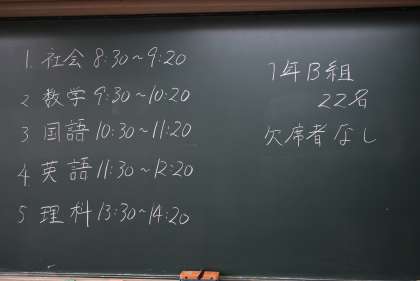 1. 社会 8:30~9:20
2 数学 9:30~10:20
3 国語 10:30~11:20
4. 英語 11:30~12:20
5 理科 13:30~14:20
1年B組
22名
欠席者なし